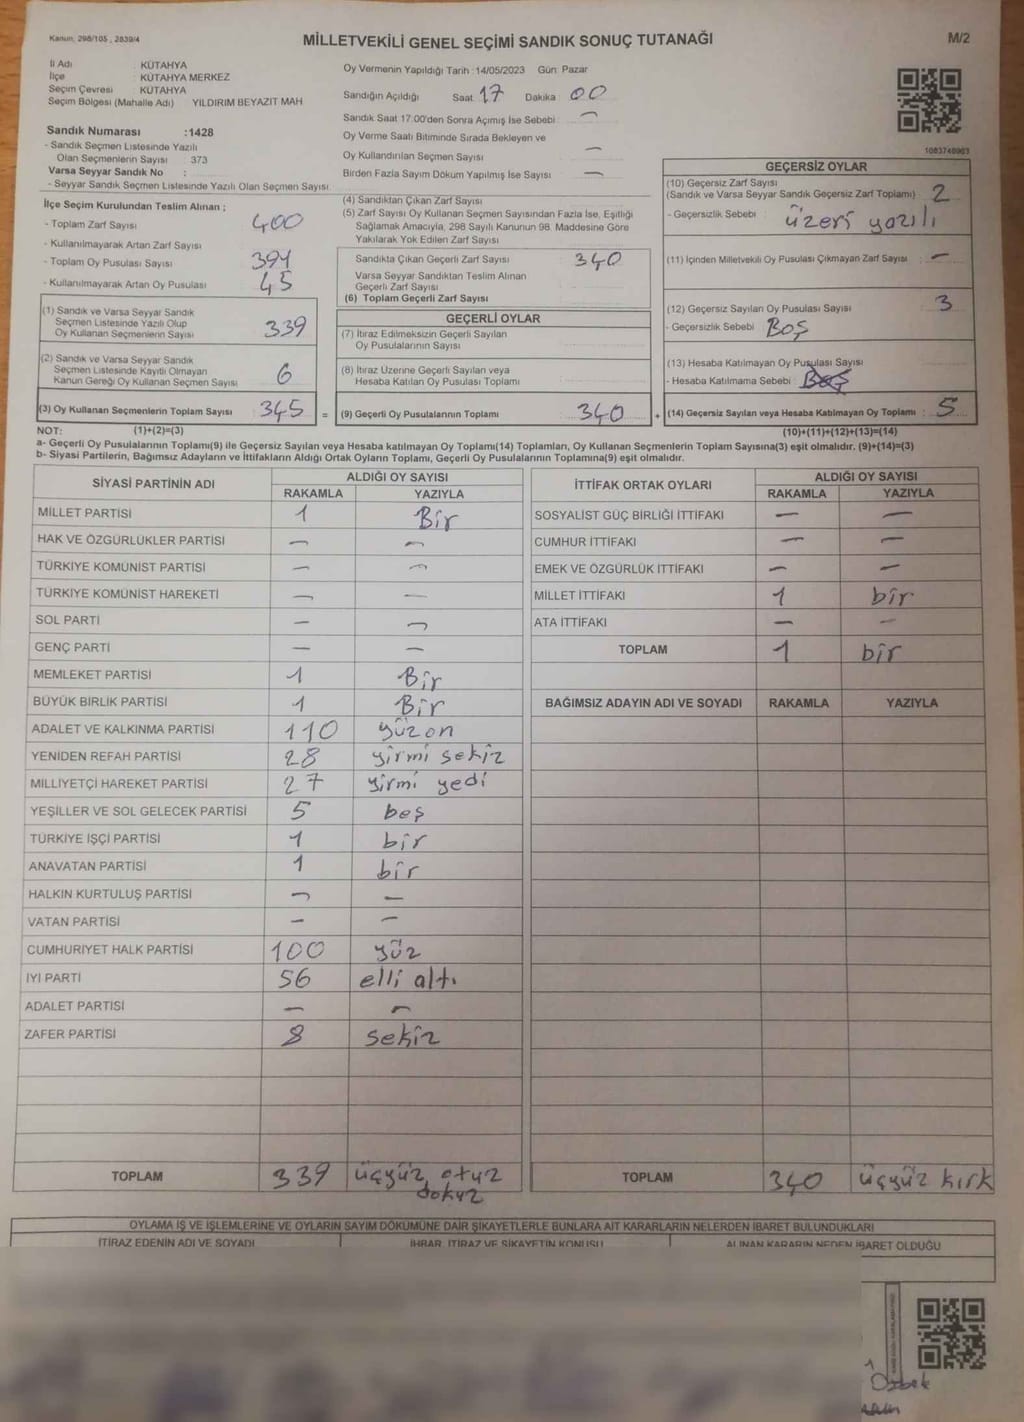 Kanun, 298/105 , 2839/4
MİLLETVEKİLİ GENEL SEÇİMİ SANDIK SONUÇ TUTANAĞI
M/2
İl Adı : KÜTAHYA
İlçe : KÜTAHYA MERKEZ
Seçim Çevresi : KÜTAHYA
Seçim Bölgesi (Mahalle Adı) YILDIRIM BEYAZIT MAH
Sandık Numarası :1428
- Sandık Seçmen Listesinde Yazılı
Olan Seçmenlerin Sayısı : 373
Varsa Seyyar Sandık No :
- Seyyar Sandık Seçmen Listesinde Yazılı Olan Seçmen Sayısı
Oy Vermenin Yapıldığı Tarih :14/05/2023 Gün: Pazar
Sandığın Açıldığı Saat 17 Dakika 00
Sandık Saat 17.00'den Sonra Açımış İse Sebebi : —
Oy Verme Saati Bitiminde Sırada Bekleyen ve
Oy Kullandırılan Seçmen Sayısı —
Birden Fazla Sayım Döküm Yapılmış İse Sayısı —
1083740903
İlçe Seçim Kurulundan Teslim Alınan ;
- Toplam Zarf Sayısı 400
- Kullanılmayarak Artan Zarf Sayısı
- Toplam Oy Pusulası Sayısı 394
- Kullanılmayarak Artan Oy Pusulası 45
(1) Sandık ve Varsa Seyyar Sandık
Seçmen Listesinde Yazılı Olup
Oy Kullanan Seçmenlerin Sayısı 339
(2) Sandık ve Varsa Seyyar Sandık
Seçmen Listesinde Kayıtlı Olmayan
Kanun Gereği Oy Kullanan Seçmen Sayısı 6
(3) Oy Kullanan Seçmenlerin Toplam Sayısı 345 =
(4) Sandıktan Çıkan Zarf Sayısı
(5) Zarf Sayısı Oy Kullanan Seçmen Sayısından Fazla İse, Eşitliği
Sağlamak Amacıyla, 298 Sayılı Kanunun 98. Maddesine Göre
Yakılarak Yok Edilen Zarf Sayısı
Sandıkta Çıkan Geçerli Zarf Sayısı 340
Varsa Seyyar Sandıktan Teslim Alınan
Geçerli Zarf Sayısı
(6) Toplam Geçerli Zarf Sayısı
GEÇERLİ OYLAR
(7) İtiraz Edilmeksizin Geçerli Sayılan
Oy Pusulalarının Sayısı
(8) İtiraz Üzerine Geçerli Sayılan veya
Hesaba Katılan Oy Pusulası Toplamı
(9) Geçerli Oy Pusulalarının Toplamı 340 +
GEÇERSİZ OYLAR
(10) Geçersiz Zarf Sayısı
(Sandık ve Varsa Seyyar Sandık Geçersiz Zarf Toplamı) 2
- Geçersizlik Sebebi : üzeri yazılı
(11) İçinden Milletvekili Oy Pusulası Çıkmayan Zarf Sayısı : —
(12) Geçersiz Sayılan Oy Pusulası Sayısı : 3
- Geçersizlik Sebebi Boş
(13) Hesaba Katılmayan Oy Pusulası Sayısı
- Hesaba Katılmama Sebebi : Boş
(14) Geçersiz Sayılan veya Hesaba Katılmayan Oy Toplamı : 5
NOT: (1)+(2)=(3)
(10)+(11)+(12)+(13)=(14)
a- Geçerli Oy Pusulalarının Toplamı(9) ile Geçersiz Sayılan veya Hesaba katılmayan Oy Toplam(14) Toplamları, Oy Kullanan Seçmenlerin Toplam Sayısına(3) eşit olmalıdır. (9)+(14)=(3)
b- Siyasi Partilerin, Bağımsız Adayların ve İttifakların Aldığı Ortak Oyların Toplamı, Geçerli Oy Pusulalarının Toplamına(9) eşit olmalıdır.
SİYASİ PARTİNİN ADI ALDIĞI OY SAYISI
RAKAMLA YAZIYLA
MİLLET PARTİSİ 1 Bir
HAK VE ÖZGÜRLÜKLER PARTİSİ — —
TÜRKİYE KOMÜNİST PARTİSİ — —
TÜRKİYE KOMÜNİST HAREKETİ — —
SOL PARTİ — —
GENÇ PARTİ — —
MEMLEKET PARTİSİ 1 Bir
BÜYÜK BİRLİK PARTİSİ 1 Bir
ADALET VE KALKINMA PARTİSİ 110 yüzon
YENİDEN REFAH PARTİSİ 28 yirmi sekiz
MİLLİYETÇİ HAREKET PARTİSİ 27 yirmi yedi
YEŞİLLER VE SOL GELECEK PARTİSİ 5 beş
TÜRKİYE İŞÇİ PARTİSİ 1 bir
ANAVATAN PARTİSİ 1 bir
HALKIN KURTULUŞ PARTİSİ — —
VATAN PARTİSİ — —
CUMHURİYET HALK PARTİSİ 100 yüz
İYİ PARTİ 56 elli altı
ADALET PARTİSİ — —
ZAFER PARTİSİ 8 sekiz
TOPLAM 339 üçyüz otuz
dokuz
İTTİFAK ORTAK OYLARI ALDIĞI OY SAYISI
RAKAMLA YAZIYLA
SOSYALİST GÜÇ BİRLİĞİ İTTİFAKI — —
CUMHUR İTTİFAKI — —
EMEK VE ÖZGÜRLÜK İTTİFAKI — —
MİLLET İTTİFAKI 1 bir
ATA İTTİFAKI — —
TOPLAM 1 bir
BAĞIMSIZ ADAYIN ADI VE SOYADI RAKAMLA YAZIYLA
TOPLAM 340 üçyüz kırk
OYLAMA İŞ VE İŞLEMLERİNE VE OYLARIN SAYIM DÖKÜMÜNE DAİR ŞİKAYETLERLE BUNLARA AİT KARARLARIN NELERDEN İBARET BULUNDUKLARI
İTİRAZ EDENİN ADI VE SOYADI İHBAR, İTİRAZ VE ŞİKAYETİN KONUSU ALINAN KARARIN NEDEN İBARET OLDUĞU
Özbek